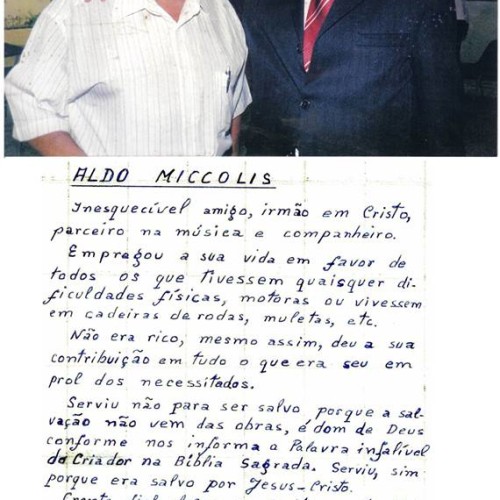 ALDO MICCOLIS
Inesquecível amigo, irmão em Cristo,
parceiro na música e companheiro.
Empregou a sua vida em favor de
todos os que tivessem quaisquer di-
ficuldades físicas, motoras ou vivessem
em cadeiras de rodas, muletas, etc.
Não era rico, mesmo assim, deu a sua
contribuição em tudo o que era seu em
prol dos necessitados.
Serviu não para ser salvo porque a sal-
vação não vem das obras, é dom de Deus
conforme nos informa a Palavra infalível
do Criador na Bíblia Sagrada. Serviu, sim
porque era salvo por Jesus-Cristo.